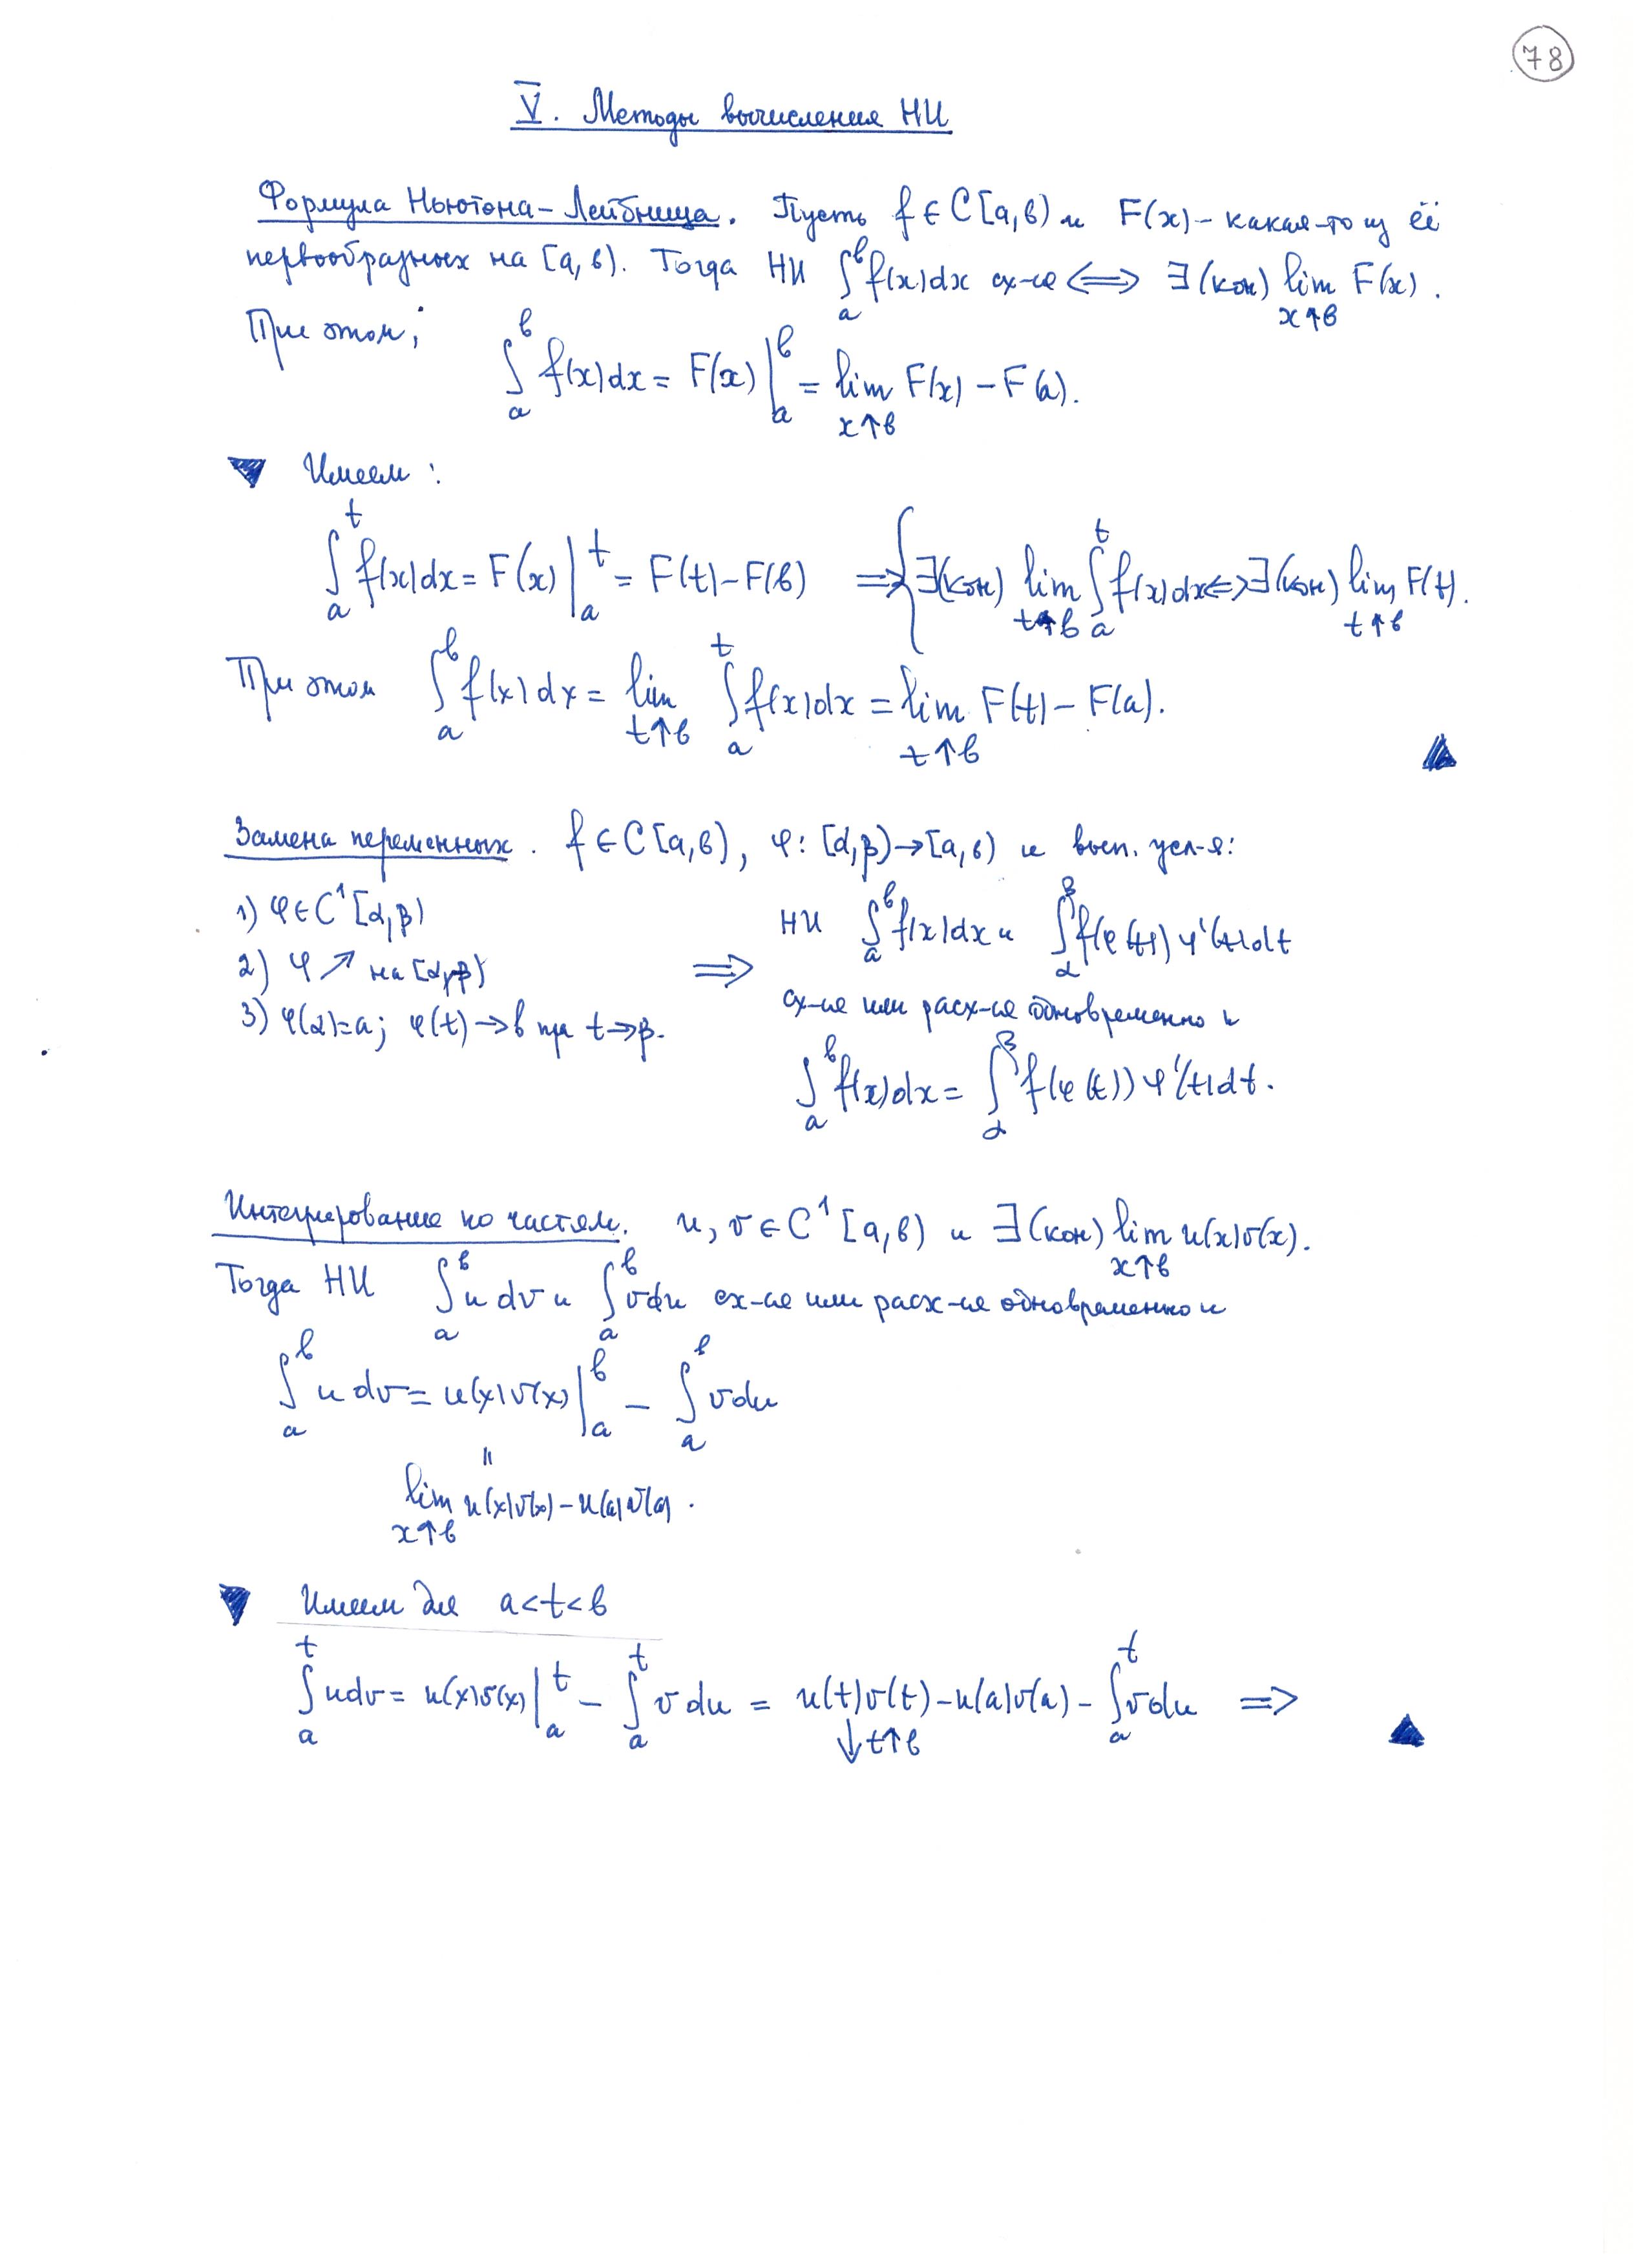 78
V. Методы вычисления НИ
Формула Ньютона-Лейбница. Пусть f ∈ C[a,b) и F(x) - какая-то из её
первообразных на [a,b). Тогда НИ ∫_a^b f(x)dx сх-ся ⟺ ∃(кон) lim_{x↑b} F(x).
При этом:
∫_a^b f(x)dx = F(x)|_a^b = lim_{x↑b} F(x) - F(a).
▼ Имеем:
∫_a^t f(x)dx = F(x)|_a^t = F(t) - F(b) ⇒ { ∃(кон) lim_{t↑b} ∫_a^t f(x)dx ⇔ ∃(кон) lim_{t↑b} F(t).
При этом ∫_a^b f(x)dx = lim_{t↑b} ∫_a^t f(x)dx = lim_{t↑b} F(t) - F(a).
▲
Замена переменных. f ∈ C[a,b), φ: [α,β) → [a,b) и вып. усл-я:
1) φ ∈ C^1[α,β)
2) φ ↗ на [α,β)
3) φ(α)=a; φ(t) → b при t → β.
⇒
НИ ∫_a^b f(x)dx и ∫_α^β f(φ(t))φ'(t)dt
сх-ся или расх-ся одновременно и
∫_a^b f(x)dx = ∫_α^β f(φ(t))φ'(t)dt.
Интегрирование по частям. u, v ∈ C^1[a,b) и ∃(кон) lim_{x↑b} u(x)v(x).
Тогда НИ ∫_a^b u dv и ∫_a^b v du сх-ся или расх-ся одновременно и
∫_a^b u dv = u(x)v(x)|_a^b - ∫_a^b v du
=
lim_{x↑b} u(x)v(x) - u(a)v(a).
▼ Имеем для a<t<b
∫_a^t u dv = u(x)v(x)|_a^t - ∫_a^t v du = u(t)v(t) - u(a)v(a) - ∫_a^t v du ⇒
↓ t↑b
▲